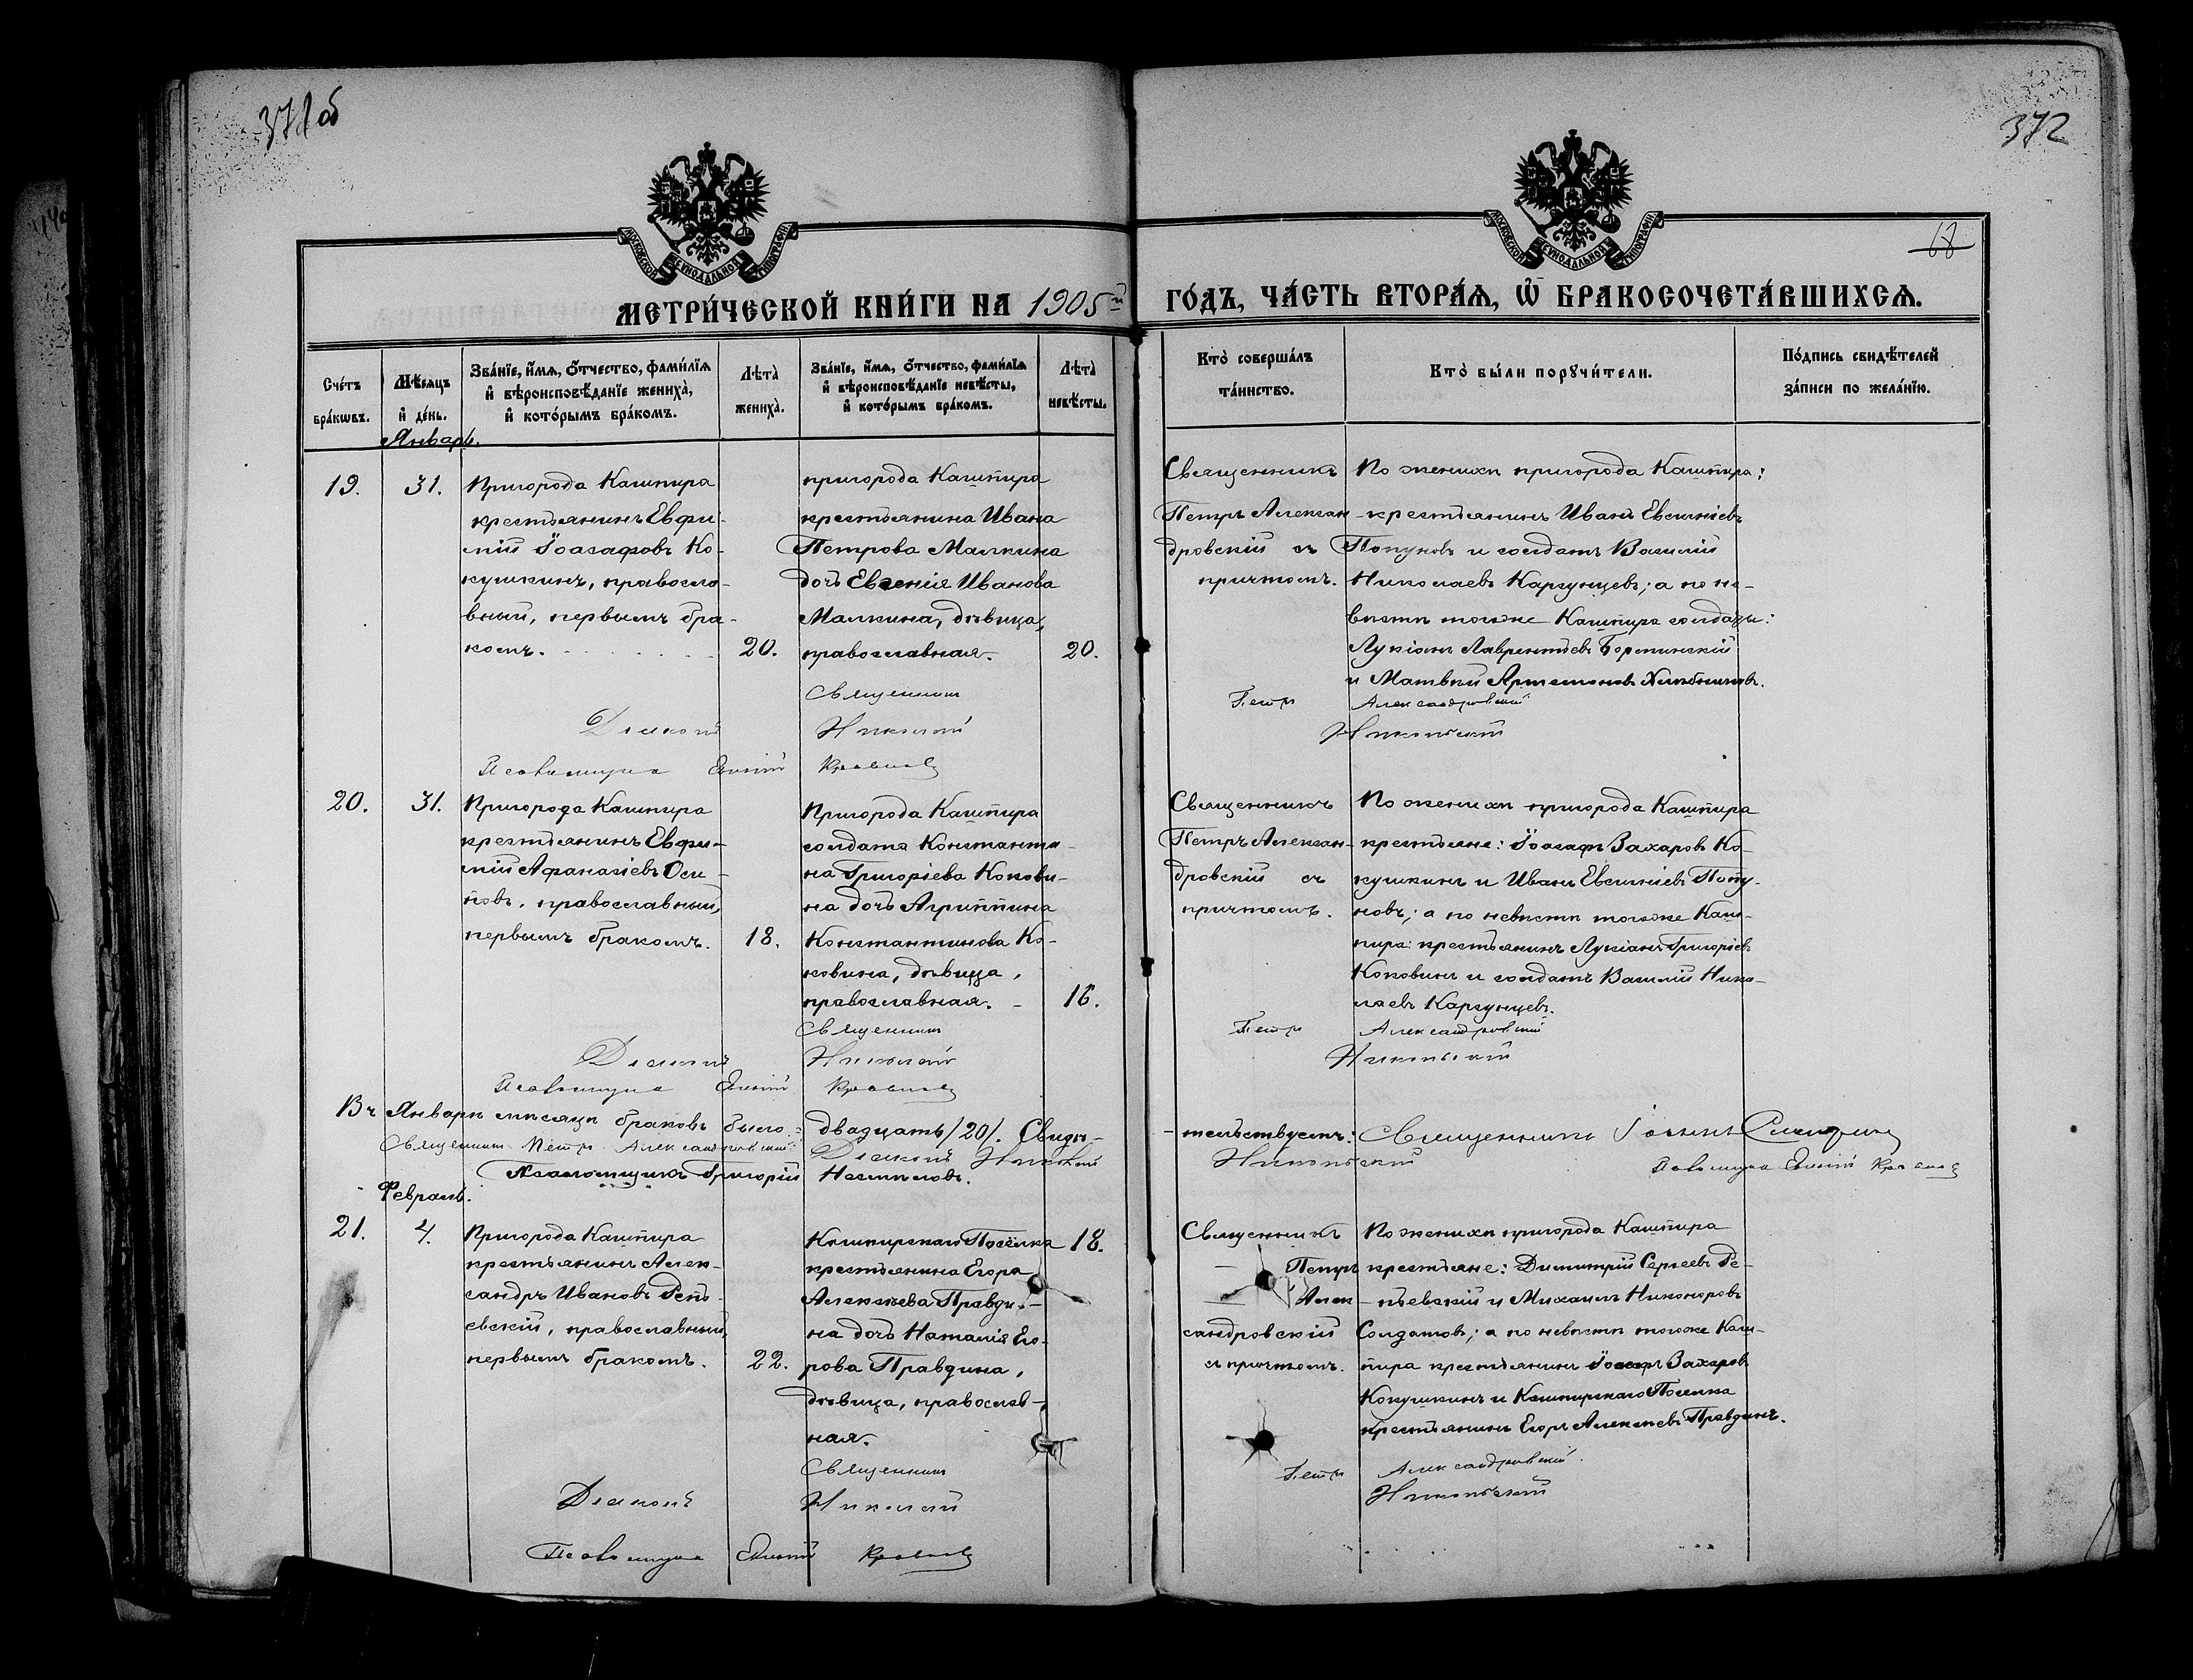 371об
372
68
МОСКОВСКОЙ СѴНОДАЛЬНОЙ ТИПОГРАФІИ
МОСКОВСКОЙ СѴНОДАЛЬНОЙ ТИПОГРАФІИ
МЕТРИ́ЧЕСКОЙ КНИ́ГИ НА 1905й ГО́ДЪ, ЧА́СТЬ ВТОРА́Я, Ѿ БРАКОСОЧЕТА́ВШИХСЯ.
Сче́тъ
бра́кѡвъ.
Мѣ́сяцъ
и҆ де́нь.
Зва́нїе, и҆́мя, ѻ҆́тчество, фами́лїя
и҆ вѣроисповѣ́данїе жениха̀,
и҆ кото́рымъ бра́комъ.
Лѣта̀
жениха̀.
Зва́нїе, и҆́мя, ѻ҆́тчество, фами́лїя
и҆ вѣроисповѣ́данїе невѣ́сты,
и҆ кото́рымъ бра́комъ.
Лѣта̀
невѣ́сты.
Кто̀ соверша́лъ
та́инство.
Кто̀ бы́ли порꙋчи́тели.
По́дпись свидѣ́телей
за́писи по жела́нїю.
Январь.
19.
31.
Пригорода Кашпира
крестьянинъ Евфи-
мій Іоасафовъ Ко-
кушкинъ, правосла-
вный, первымъ бра-
комъ.
20.
пригорода Кашпира
крестьянина Ивана
Петрова Малкина
дочь Евгенія Иванова
Малкина, дѣвица,
православная.
20.
Священникъ
Петръ Алексан-
дровскій съ
причтомъ.
По женихѣ пригорода Кашпира:
крестьянинъ Иванъ Евсигніевъ
Попуновъ и солдатъ Василій
Николаевъ Каргунцевъ; а по не-
вѣстѣ тогоже Кашпира солдаты:
Лукіанъ Лаврентьевъ
и Матвѣй Артемоновъ Хлѣбниковъ.
Священникъ Петръ Александровскій
Діаконъ Николай Никольскій
Псаломщикъ
20.
31.
Пригорода Кашпира
крестьянинъ Евфи-
мій Афанасіевъ Оси-
повъ, православный,
первымъ бракомъ.
18.
Пригорода Кашпира
солдата Константи-
на Григоріева Кокови-
на дочь Агриппина
Константинова Ко-
ковина, дѣвица,
православная.
16.
Священникъ
Петръ Алексан-
дровскій съ
причтомъ.
По женихѣ пригорода Кашпира
крестьяне: Іоасафъ Захаровъ Ко-
кушкинъ и Иванъ Евсигніевъ Попу-
новъ; а по невѣстѣ тогоже Каш-
пира: крестьянинъ Лукіанъ Григоріевъ
Коковинъ и солдатъ Василій Нико-
лаевъ Каргунцевъ.
Священникъ Петръ Александровскій
Діаконъ Николай Никольскій
Псаломщикъ
Въ Январѣ мѣсяцѣ браковъ было: двадцать /20/. Свидѣ-
тельствуемъ: Священникъ Іоаннъ
Священникъ Петръ Александровскій Діаконъ Николай Никольскій
Псаломщикъ
Псаломщикъ Григорій Несмѣловъ.
Февраль.
21.
4.
Пригорода Кашпира
крестьянинъ Алек-
сандръ Ивановъ Репь-
евскій, православный,
первымъ бракомъ.
22.
Кашпирскаго Посёлка
крестьянина Егора
Алексѣева Правди-
на дочь Наталія Его-
рова Правдина,
дѣвица, православ-
ная.
18.
Священникъ
Петръ
Алек-
сандровскій
съ причтомъ.
По женихѣ пригорода Кашпира
крестьяне: Димитрій Сергеевъ Ре-
пьевскій и Михаилъ Никоноровъ
Солдатовъ; а по невѣстѣ тогоже Каш-
пира крестьянинъ Іоасафъ Захаровъ
Кокушкинъ и Кашпирскаго Поселка
крестьянинъ Егоръ Алексѣевъ Правдинъ.
Священникъ Петръ Александровскій
Діаконъ Николай Никольскій
Псаломщикъ